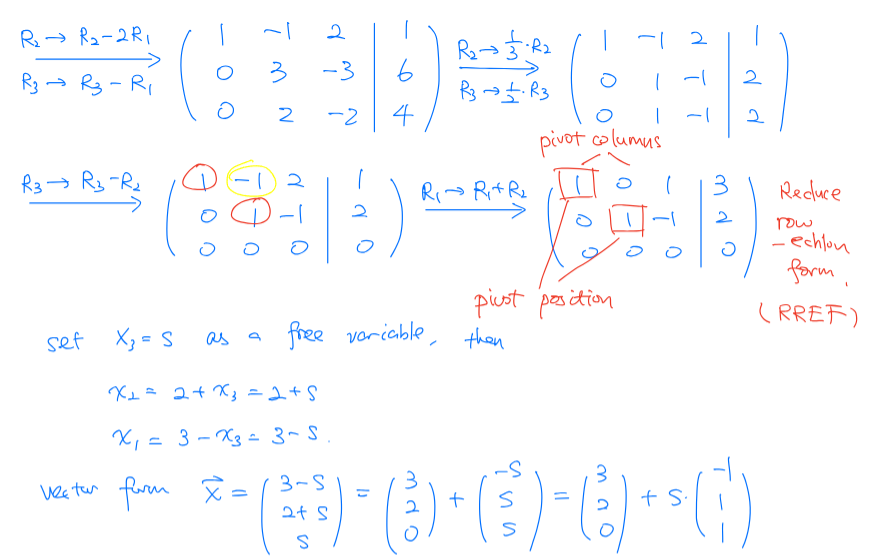 R₂ → R₂ - 2R₁
R₃ → R₃ - R₁
( 1 -1 2 | 1 )
( 0 3 -3 | 6 )
( 0 2 -2 | 4 )
R₂ → 1/3 · R₂
R₃ → 1/2 · R₃
( 1 -1 2 | 1 )
( 0 1 -1 | 2 )
( 0 1 -1 | 2 )
R₃ → R₃ - R₂
( 1 -1 2 | 1 )
( 0 1 -1 | 2 )
( 0 0 0 | 0 )
R₁ → R₁ + R₂
pivot columns
( 1 0 1 | 3 )
( 0 1 -1 | 2 )
( 0 0 0 | 0 )
pivot position
Reduce
row
- echlon
form.
(RREF)
set x₃ = s as a free variable, then
x₂ = 2 + x₃ = 2 + s
x₁ = 3 - x₃ = 3 - s.
vector form x⃗ = (3 - s, 2 + s, s) = (3, 2, 0) + (-s, s, s) = (3, 2, 0) + s · (-1, 1, 1)